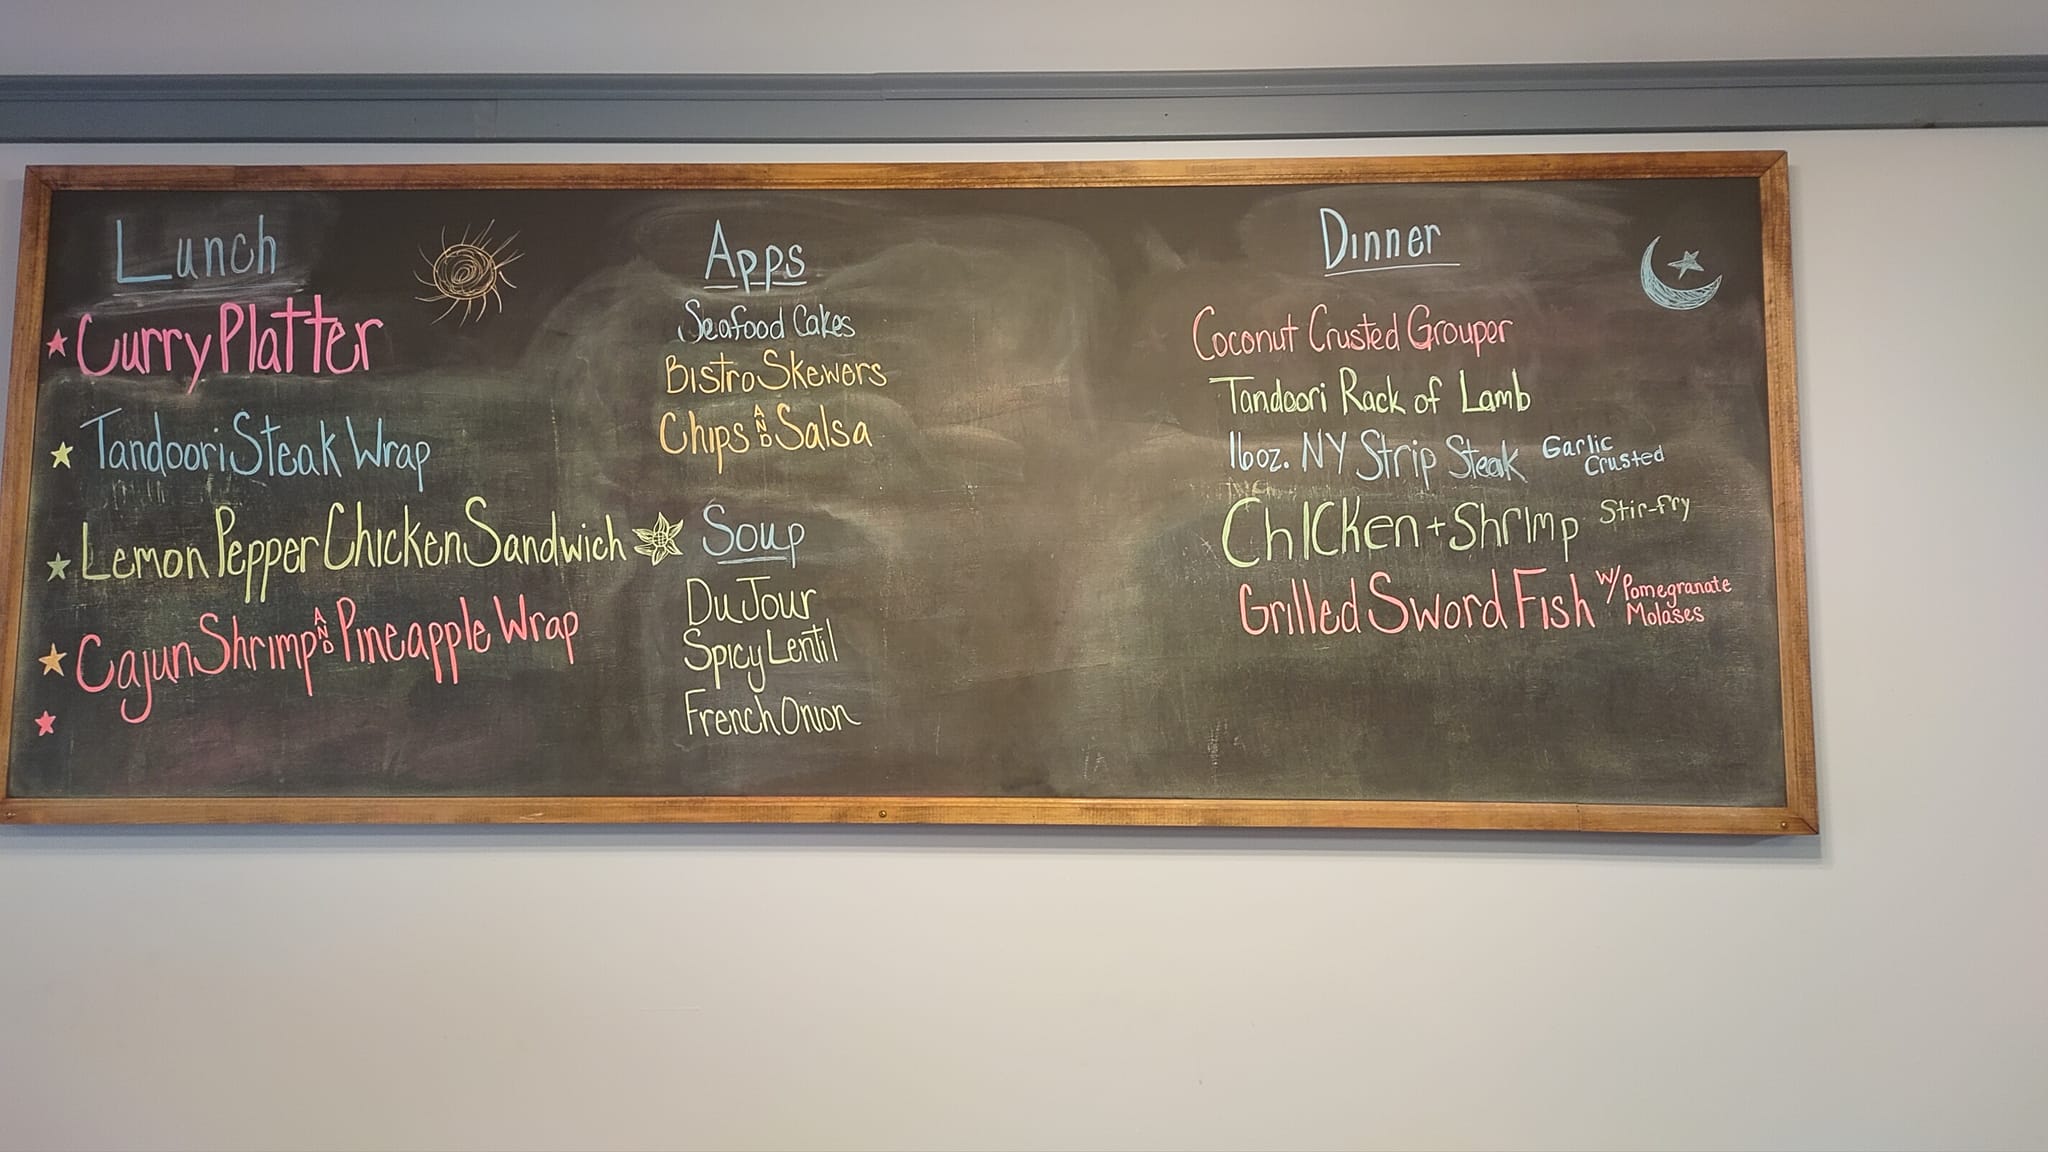 Lunch
Curry Platter
Tandoori Steak Wrap
Lemon Pepper Chicken Sandwich
Cajun Shrimp AND Pineapple Wrap
Apps
Seafood Cakes
Bistro Skewers
Chips AND Salsa
Soup
Du Jour
Spicy Lentil
French Onion
Dinner
Coconut Crusted Grouper
Tandoori Rack of Lamb
16oz. NY Strip Steak Garlic Crusted
Chicken + Shrimp Stir-fry
Grilled Sword Fish w/ Pomegranate Molases